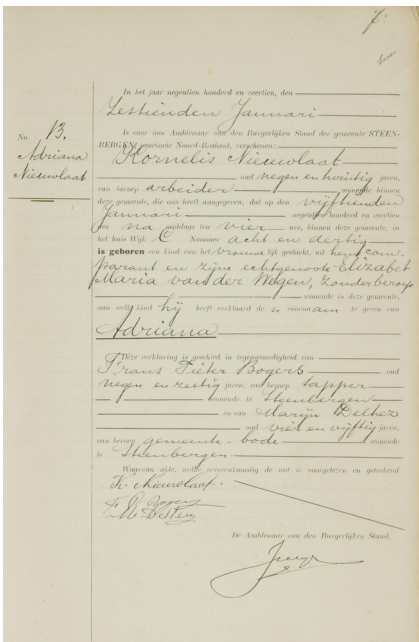 In het jaar negentien honderd en veertien, den
Zestienden Januari
Is voor ons Ambtenaar van den Burgerlijken Stand der gemeente STEEN-
BERGEN, provincie Noord-Brabant, verschenen:
No. 13.
Adriana
Nieuwlaat
Kornelis Nieuwlaat
oud negen en twintig jaren,
van beroep arbeider wonende binnen
deze gemeente, die ons heeft aangegeven, dat op den vijftienden
Januari negentien honderd en veertien
des na middags ten vier ure, binnen deze gemeente, in
het huis Wijk C Nummer acht en dertig
is geboren een kind van het vrouwelijk geslacht, uit hem com-
parant en zijne echtgenoote Elizabet
Maria van der Wegen, zonder beroep
wonende in deze gemeente,
aan welk kind hij heeft verklaard de n voornaam te geven van
Adriana
Deze verklaring is geschied in tegenwoordigheid van
Frans Pieter Bogers oud
negen en zestig jaren, van beroep tapper
wonende te Steenbergen
en van Marijn Delhez
oud vier en vijftig jaren,
van beroep gemeente-bode wonende
te Steenbergen.
Waarvan akte, welke overeenkomstig de wet is voorgelezen en geteekend
K. Nieuwlaat.
F. P. Bogers
M. Delhez
De Ambtenaar van den Burgerlijken Stand,